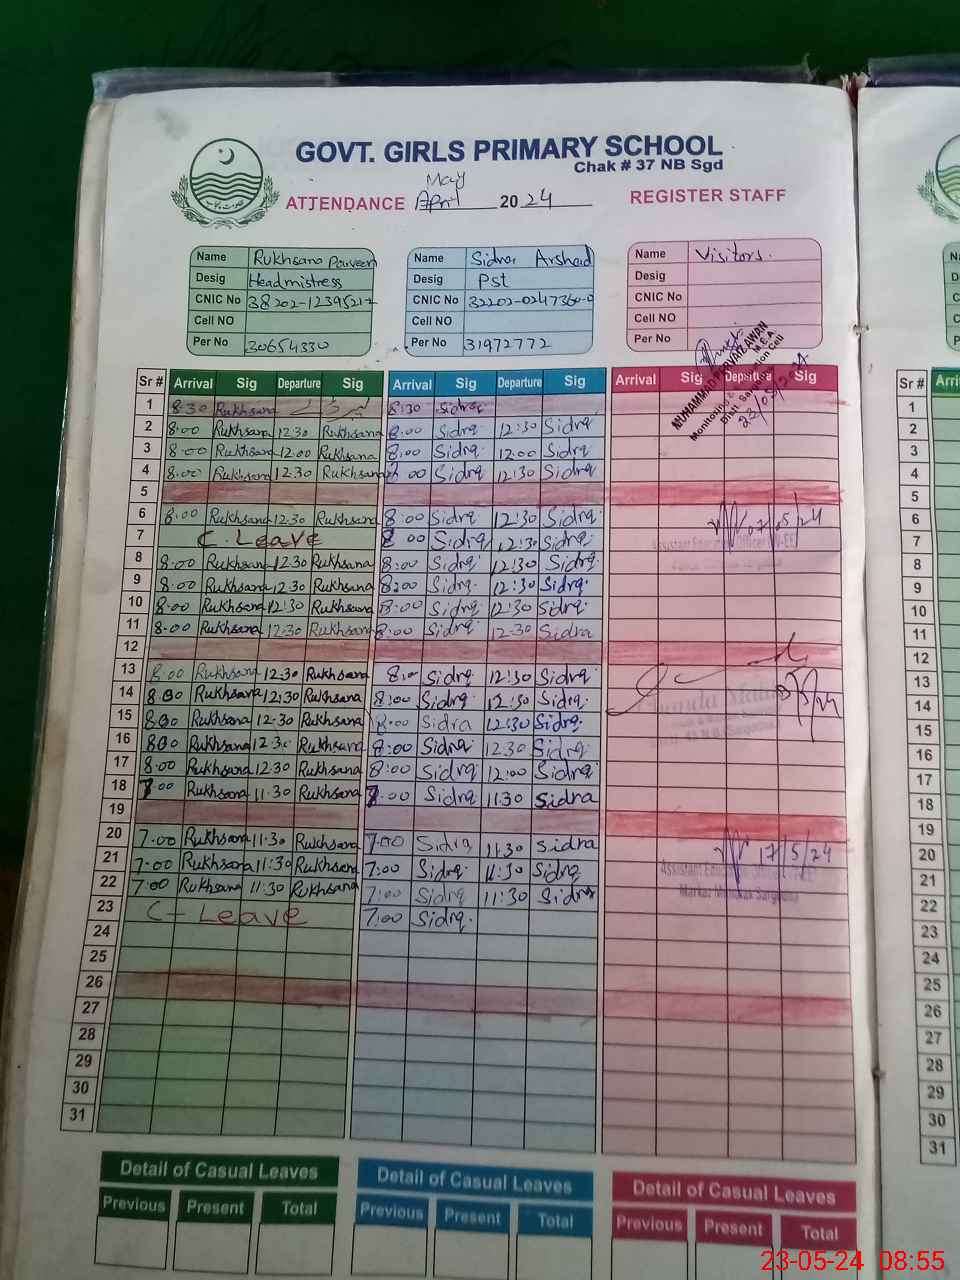 GOVT. GIRLS PRIMARY SCHOOL
Chak # 37 NB Sgd
May
ATTENDANCE April 2024 REGISTER STAFF
Name Rukhsana Parveen Name Sidra Arshad Name Visitors.
Desig Headmistress Desig Pst Desig
CNIC No CNIC No CNIC No
Cell NO Cell NO Cell NO
Per No 30654330 Per No 31972772 Per No
MUHAMMAD PARVAIZ AWAN
M.E.A
Sr # Arrival Sig Departure Sig Arrival Sig Departure Sig Arrival Sig Departure Sig Sr #
1 8:30 Rukhsana 8:30 Sidra 1
2 8:00 Rukhsana 12:30 Rukhsana 8:00 Sidra 12:30 Sidra 2
3 8:00 Rukhsana 12:00 Rukhsana 8:00 Sidra 12:00 Sidra 3
4 8:00 Rukhsana 12:30 Rukhsana 8:00 Sidra 12:30 Sidra 4
5 5
6 8:00 Rukhsana 12:30 Rukhsana 8:00 Sidra 12:30 Sidra 07/05/24 6
7 C. Leave 8:00 Sidra 12:30 Sidra 7
8 8:00 Rukhsana 12:30 Rukhsana 8:00 Sidra 12:30 Sidra 8
9 8:00 Rukhsana 12:30 Rukhsana 8:00 Sidra 12:30 Sidra 9
10 8:00 Rukhsana 12:30 Rukhsana 8:00 Sidra 12:30 Sidra 10
11 8:00 Rukhsana 12:30 Rukhsana 8:00 Sidra 12:30 Sidra 11
12 12
13 8:00 Rukhsana 12:30 Rukhsana 8:00 Sidra 12:30 Sidra 13
14 8:00 Rukhsana 12:30 Rukhsana 8:00 Sidra 12:30 Sidra 14
15 8:00 Rukhsana 12:30 Rukhsana 8:00 Sidra 12:30 Sidra 15
16 8:00 Rukhsana 12:30 Rukhsana 8:00 Sidra 12:30 Sidra 16
17 8:00 Rukhsana 12:30 Rukhsana 8:00 Sidra 12:00 Sidra 17
18 7:00 Rukhsana 11:30 Rukhsana 7:00 Sidra 11:30 Sidra 18
19 19
20 7:00 Rukhsana 11:30 Rukhsana 7:00 Sidra 11:30 Sidra 17/5/24 20
21 7:00 Rukhsana 11:30 Rukhsana 7:00 Sidra 11:30 Sidra 21
22 7:00 Rukhsana 11:30 Rukhsana 7:00 Sidra 11:30 Sidra 22
23 C-Leave 7:00 Sidra 23
24 24
25 25
26 26
27 27
28 28
29 29
30 30
31 31
Detail of Casual Leaves Detail of Casual Leaves Detail of Casual Leaves
Previous Present Total Previous Present Total Previous Present Total
23-05-24 08:55